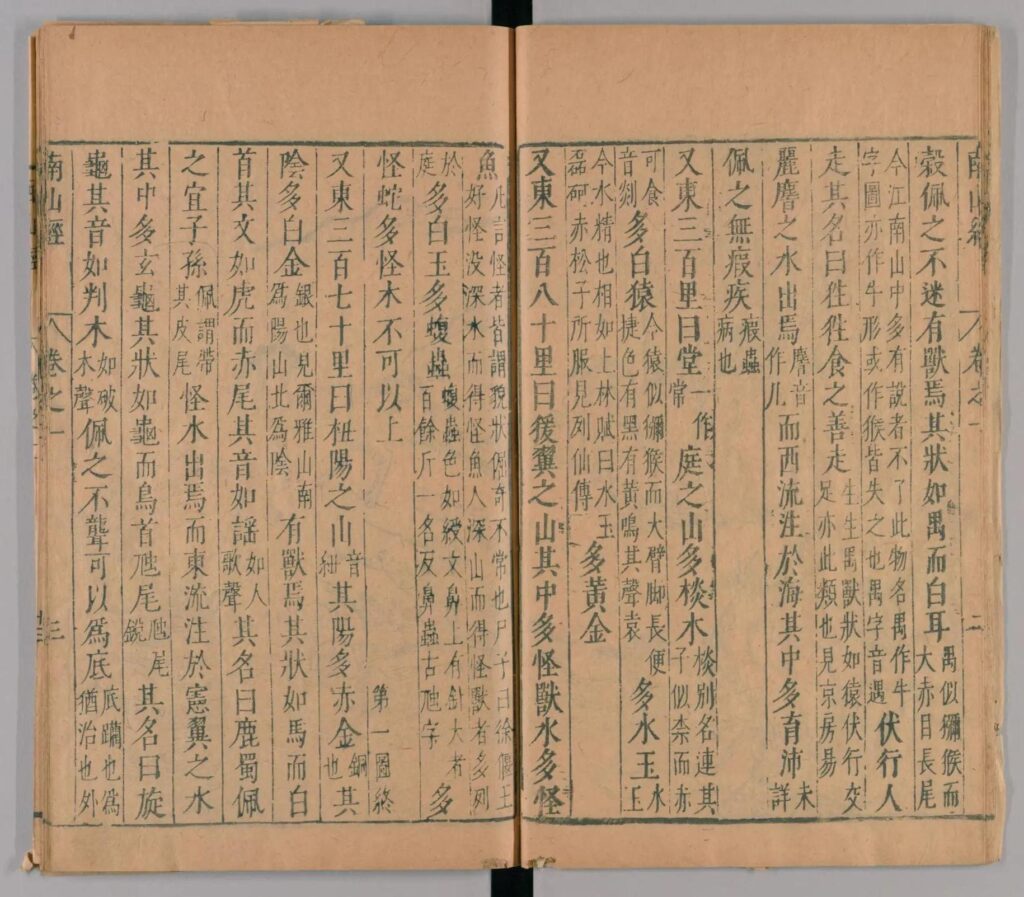 南山經 卷之一 二
穀佩之不迷有獸焉其狀如禺而白耳禺似獼猴而大赤目長尾
今江南山中多有說者不了此物名禺作牛字圖亦作牛形或作猴皆失之也禺字音遇伏行人
走其名曰狌狌食之善走生生禺獸狀如猿伏行交足亦此類也見京房易
麗𪊨之水出焉𪊨音作几而西流注於海其中多育沛未詳
佩之無瘕疾瘕蟲病也
又東三百里曰堂一作常庭之山多棪木棪別名連其子似柰而赤
可食音剡多白猿今猿似獼猴而大臂脚長便捷色有黑有黃鳴其聲哀多水玉水玉
今水精也相如上林賦曰水玉磊砢赤松子所服見列仙傳多黃金
又東三百八十里曰猨翼之山其中多怪獸水多怪
魚凡言怪者皆謂貌狀倔奇不常也尸子曰徐偃王好怪没深水而得怪魚人深山而得怪獸者多列
於庭多白玉多蝮蟲蝮蟲色如綬文鼻上有針大者百餘斤一名反鼻蟲古虺字多
怪蛇多怪木不可以上 第一圖終
又東三百七十里曰杻陽之山音紐其陽多赤金銅也其
陰多白金銀也見爾雅山南爲陽山北爲陰有獸焉其狀如馬而白
首其文如虎而赤尾其音如謠如人歌聲其名曰鹿蜀佩
之宜子孫佩謂帶其皮尾怪水出焉而東流注於憲翼之水
其中多玄龜其狀如龜而鳥首虺尾虺尾銳其名曰旋
龜其音如判木如破木聲佩之不聾可以爲底底躪也爲猶治也外
南山經 卷之一 三